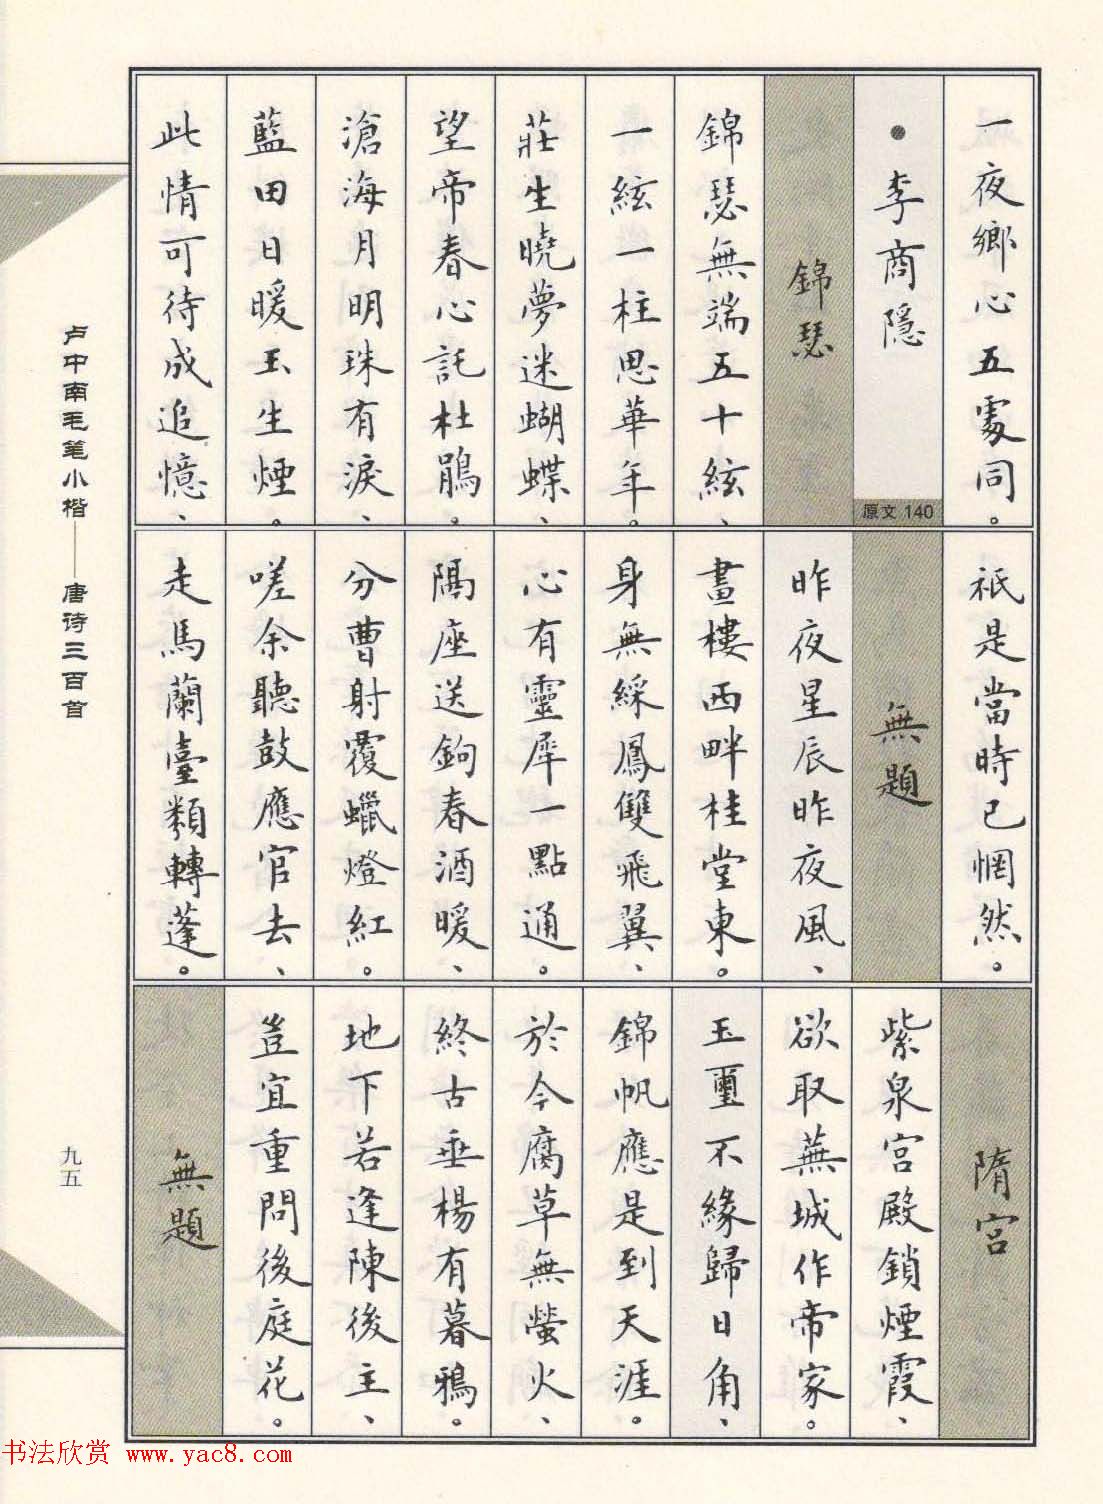 一夜鄉心五處同。
●李商隱
原文 140
錦瑟
錦瑟無端五十絃、
一絃一柱思華年。
莊生曉夢迷蝴蝶、
望帝春心託杜鵑。
滄海月明珠有淚、
藍田日暖玉生煙。
此情可待成追憶、
祇是當時已惘然。
無題
昨夜星辰昨夜風、
畫樓西畔桂堂東。
身無綵鳳雙飛翼、
心有靈犀一點通。
隔座送鉤春酒暖、
分曹射覆蠟燈紅。
嗟余聽鼓應官去、
走馬蘭臺類轉蓬。
隋宮
紫泉宮殿鎖煙霞、
欲取蕪城作帝家。
玉璽不緣歸日角、
錦帆應是到天涯。
於今腐草無螢火、
終古垂楊有暮鴉。
地下若逢陳後主、
豈宜重問後庭花。
無題
卢中南毛笔小楷——唐诗三百首
九五
书法欣赏 www.yac8.com